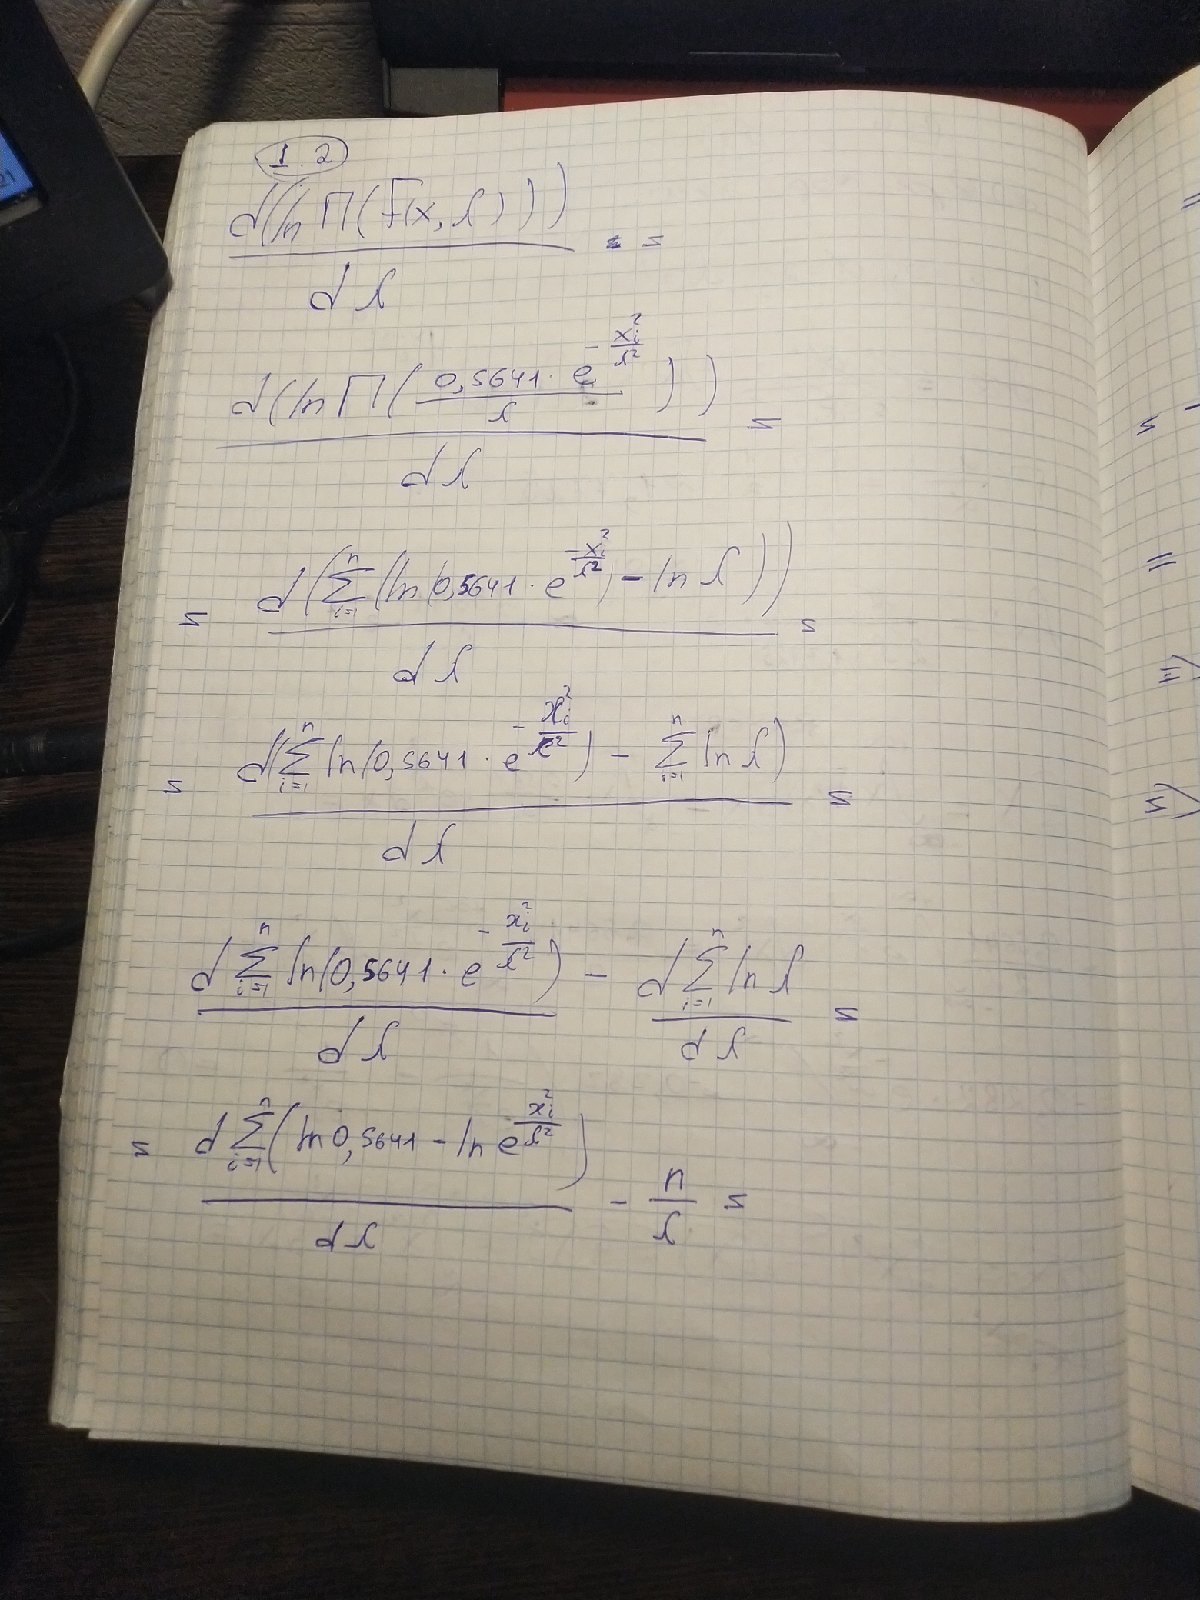 12
d(ln Π(F(x, l))) / dl = =
d(ln Π(0,5641 · e^(-x_i^2/l^2) / l)) / dl =
= d(∑_{i=1}^{n} (ln(0,5641 · e^(-x_i^2/l^2)) - ln l)) / dl =
= d(∑_{i=1}^{n} ln(0,5641 · e^(-x_i^2/l^2)) - ∑_{i=1}^{n} ln l) / dl =
d ∑_{i=1}^{n} ln(0,5641 · e^(-x_i^2/l^2)) / dl - d ∑_{i=1}^{n} ln l / dl =
= d ∑_{i=1}^{n} (ln 0,5641 - ln e^(x_i^2/l^2)) / dl - n/l =